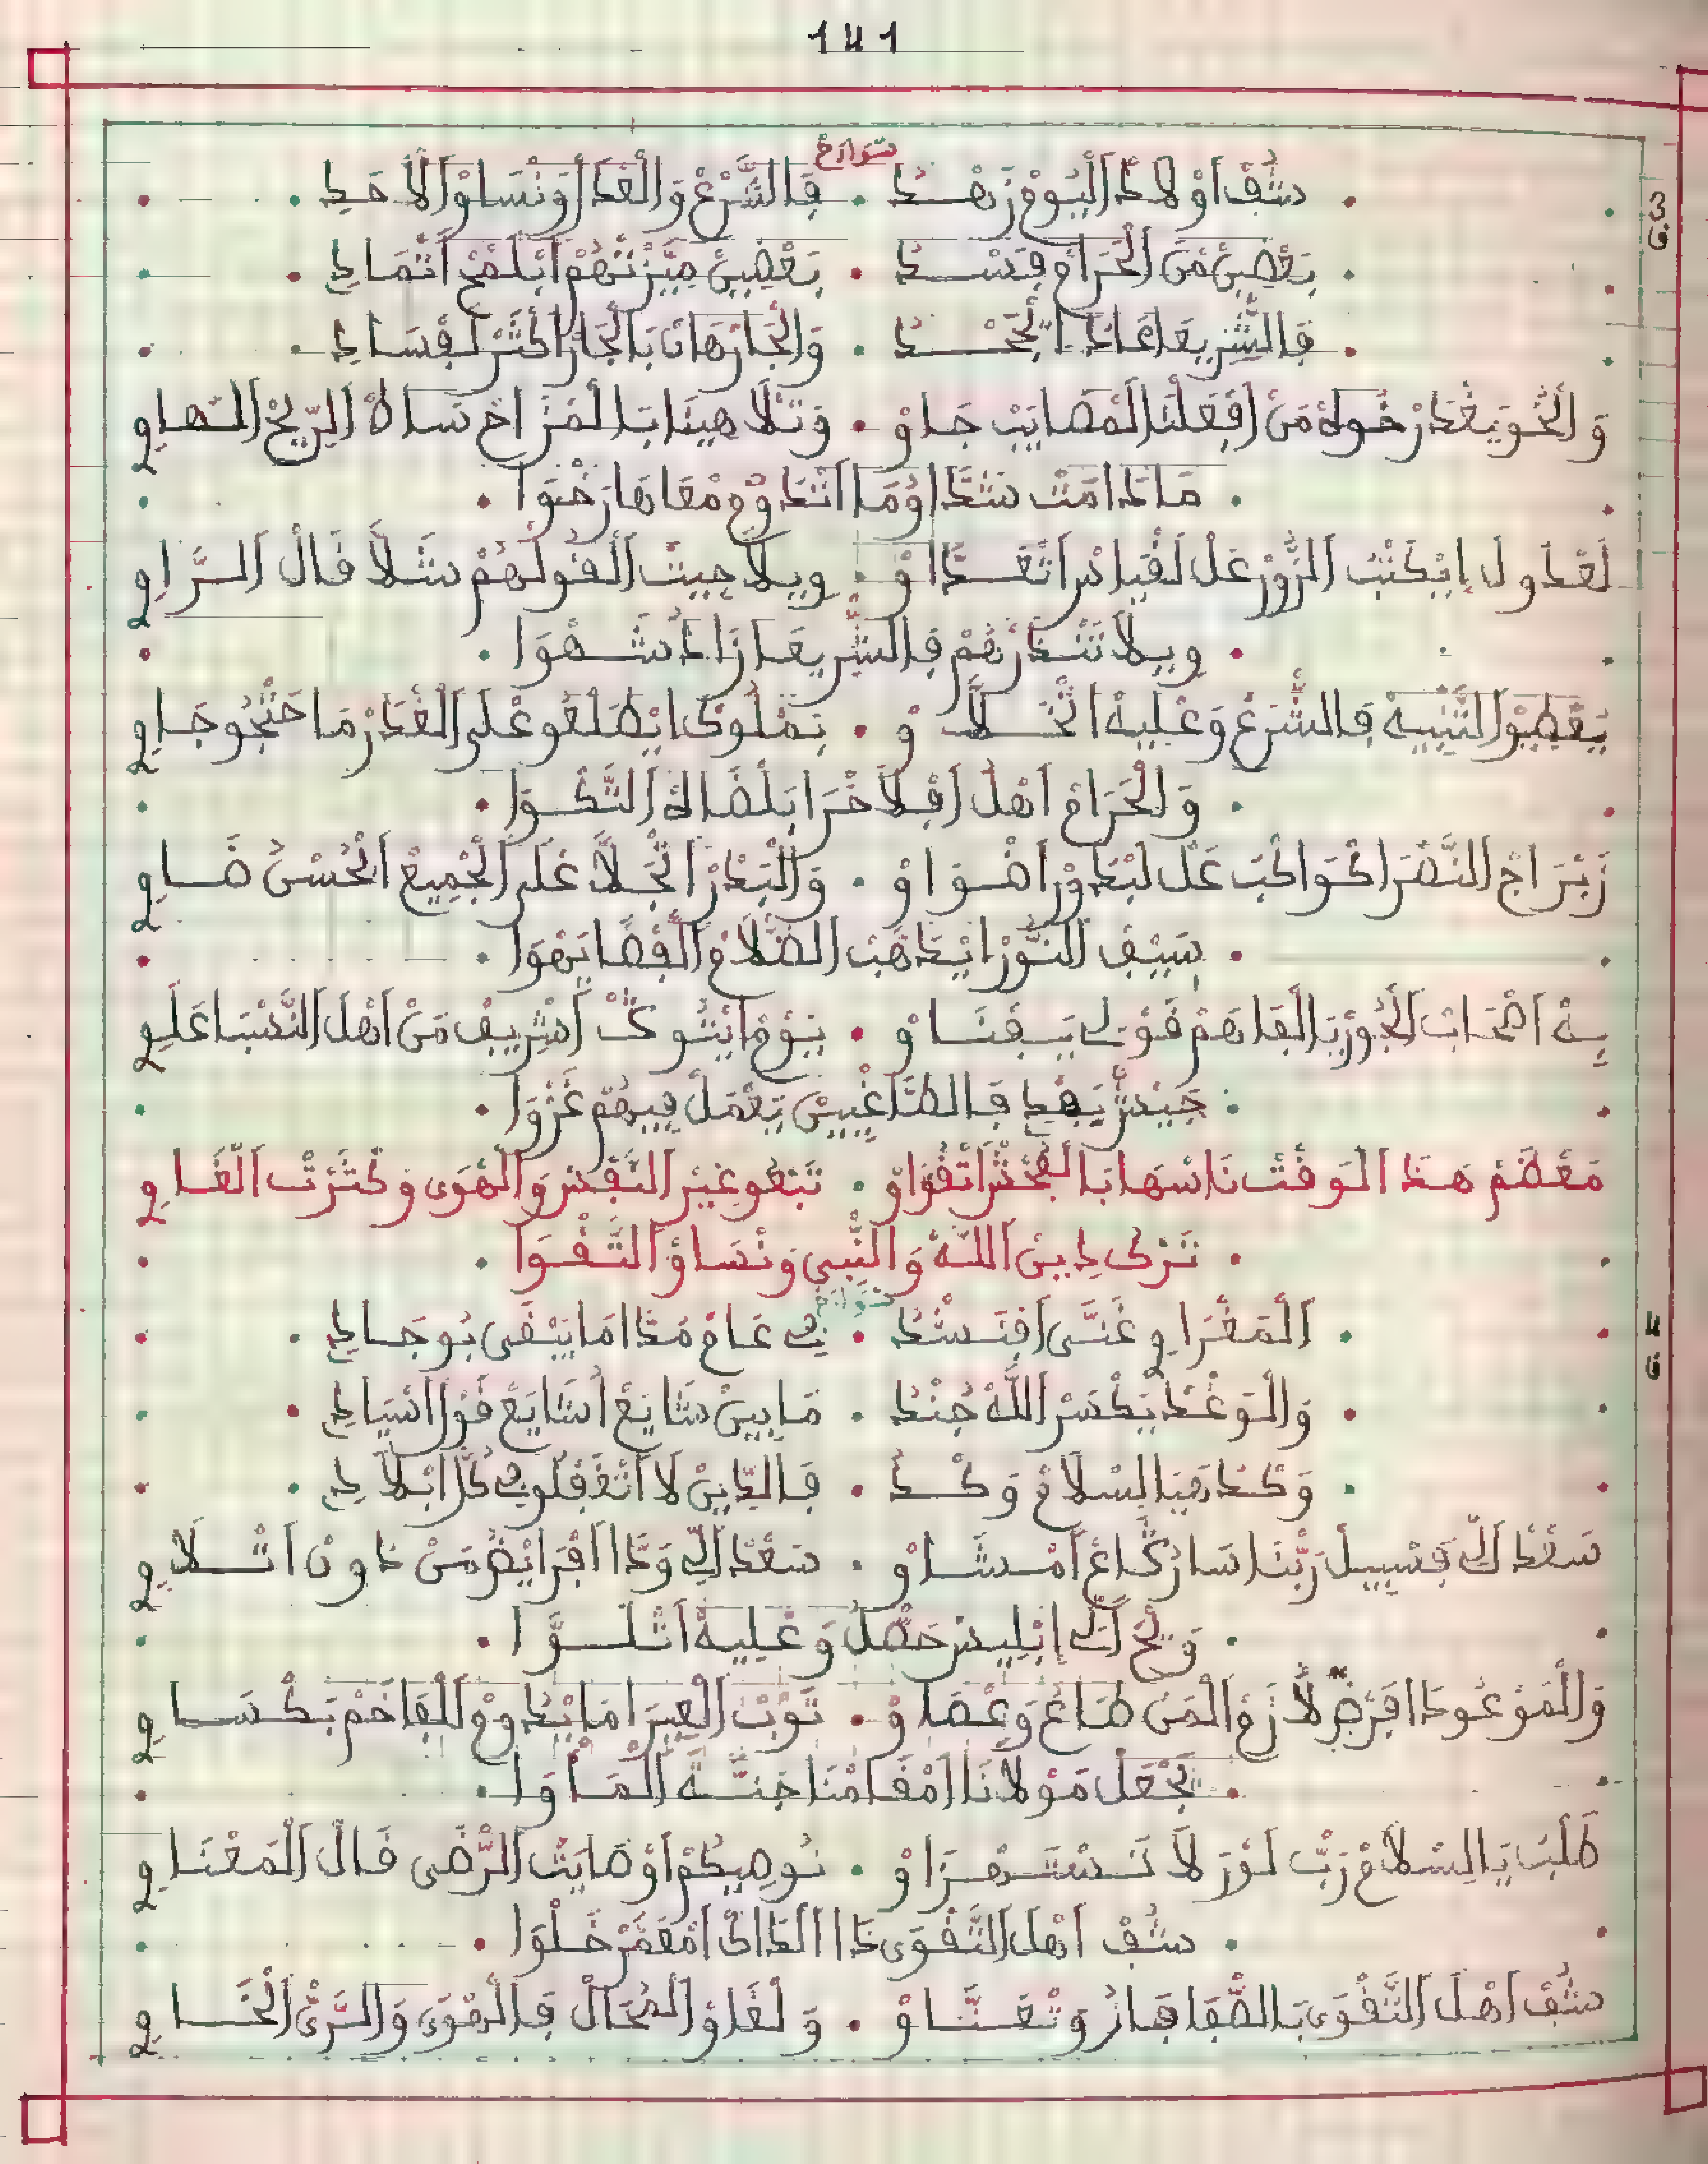 141
سوارح
شُفْ اَوْلَادْ اَلْيُومْ زَهْدُ . فَالشَّرْعْ وَالْغَدَرْ وَنْسَاوْ اَلَّا حَدِ
3 ق
بَعْضِينْ مَنْ اَلْحَرَامْ فَسْدُ . بَعْضِينْ مِيَّزْتْهُمْ اَبْلَمْحْ اَثْمَادِ
فَالشَّرِيعَا عَادْ اَلْجَحْدُ . وَالْجَارْ هَانْ بَالْجَارْ اَكْثَرْ لَفْسَادِ
وَالْخُو يَغْدَرْ خُوهْ مَنْ اَفْعَلْنَا لَمْصَايَبْ جَاوْ . وَتْلَاهِينَا بَالْمَزَاحْ نَسَاهْ اَلرِّيحْ اَلْهَاوِي
مَا دَامَتْ شَدَّا وُمَا اَتْدُومْ مْعَاهَا رَخْوَا
لَعْدُولْ اِيْكَتْبُ الزُّورْ عَلْ لَقْيَاسْ اَتْعَدَّاوْ . وِيلَا جِيتْ اَلْقُولْهُمْ شَلَّا قَالْ الرَّاوِي
وِيلَا تَنْدَرْهُمْ فَالشَّرِيعَا زَادُ شَهْوَا
يَعْطِيوْ التَّنْبِيهْ فَالشَّرْعْ وَعْلِيهْ اَتْخَلَّاوْ . بَمْلُوكْ اَيْطَلْعُو عْلَى الْغَدَرْ مَا حَتْجُو جَاوِي
وَالْحَرَامْ اَهْلُ اَفْلَاخْرَا بَلْضَاهْ اَلتَّكْوَا
زَبْرَاجْ النَّصْرَ اَكْوَاكَبْ عَلْ لَبْدُورْ اَضْوَاوْ . وَالْبَدْرْ اَتْجَلَّا عْلَى الْجْمِيعْ اَلْحُسْنُ ضَاوِي
سَيْفْ النُّورْ اَيْدَهَّبْ الظْلَامْ اَلْفْضَا يَهْوَا
بِهْ اَصْحَابْ الْجُورْ بَالْقَاهَمْ قَوْلِي يَفْنَاوْ . يُومْ اَيْتُوكْ اَشْرِيفْ مَنْ اَهْلْ النَّسْبَا عَلَوِي
جَيْشْ يَهْدِ فَالطَّاغِيينْ يَعْمَلْ فِيهُمْ غَزْوَا
مَعْضَمْ هَذَا الْوَقْتْ نَاسْهَا بَالْفُحْشْ اَتْقْوَاوْ . تَبْعُو غِيرْ النَّفْسْ وَالْهْوَى وَكَثْرَتْ الْغَاوِي
تَرْكُ دِينْ اَللَّهْ وَالنَّبِي وَنْسَاوْ التَّقْوَا
سوارح
اَلْمَغْرَاوِي غَنَّى اَفْنَشْدُ . فِي عَامْ هَذَا مَا يَبْقَى بُوجَادِي
4 ق
وَالْوَغْدْ يَكْسَرْ اَللَّهْ جُنْدُ . مَابِينْ شَايَعْ اَشَايَعْ قَوْلْ اَسْيَادِي
وَكْدْ هَيْبَا لِسْلَامْ وَكْدُ . فَالدِّينْ لَا اَتْغَفْلُو فِي كُلّْ اَبْلَادِ
سَعْدْ اَلِّي فَسْبِيلْ رَبْنَا سَارْ كَّاعْ اَمْشَاوْ . سَعْدْ اَلِّي وَدَّا اَفْرَايْضُ مَنْ دُونْ اَتْلَاوِي
وَيْحْ اَلِّي إِبْلِيسْ حَصْلُ وَعْلِيهْ اَتْلَوَّا
وَالْمَوْعُودْ اَفْرَضْ لَازَمْ اَلْمَنْ طَاعْ وَعْصَاوْ . تُوبْ الْعِيرَا مَا يْدُومْ وَالْفَاحَمْ بَكْسَاوِي
يَجْعَلْ مَوْلَانَا اَمْقَامْنَا جَنَّةْ اَلْمَأْوَا
طَلْبْ يَالِسْلَامْ رَبّْ لَوْرَ لَا تَسْتَهْزَاوْ . نُوصِيكُمْ اَوْصَايَتْ الرَّضَى قَالْ اَلْمَعْنَاوِي
شُفْ اَهْلْ التَّقْوَى دَا اَلدَاكْ اَمْعَمَّرْ خَلْوَا
شُفْ اَهْلْ التَّقْوَى بَالصْفَا فَازُ وَتْغَنَّاوْ . وَلْغَاوْ الْمُحَالْ فَالْهْوَى وَالسَّرّْ اَلْخَاوِي